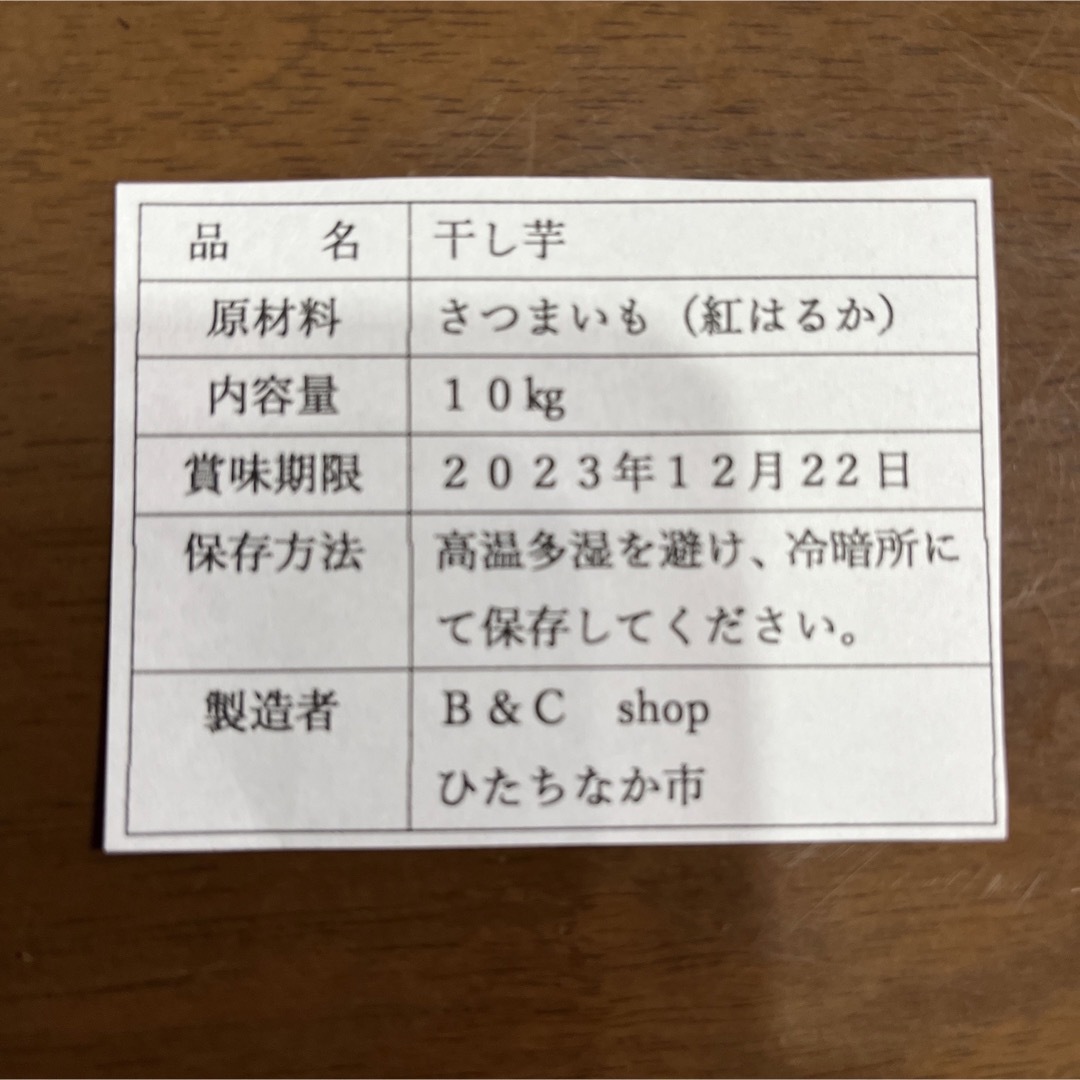 品　　名　干し芋
原材料　さつまいも（紅はるか）
内容量　１０㎏
賞味期限　２０２３年１２月２２日
保存方法　高温多湿を避け、冷暗所に
て保存してください。
製造者　Ｂ＆Ｃ　shop
ひたちなか市